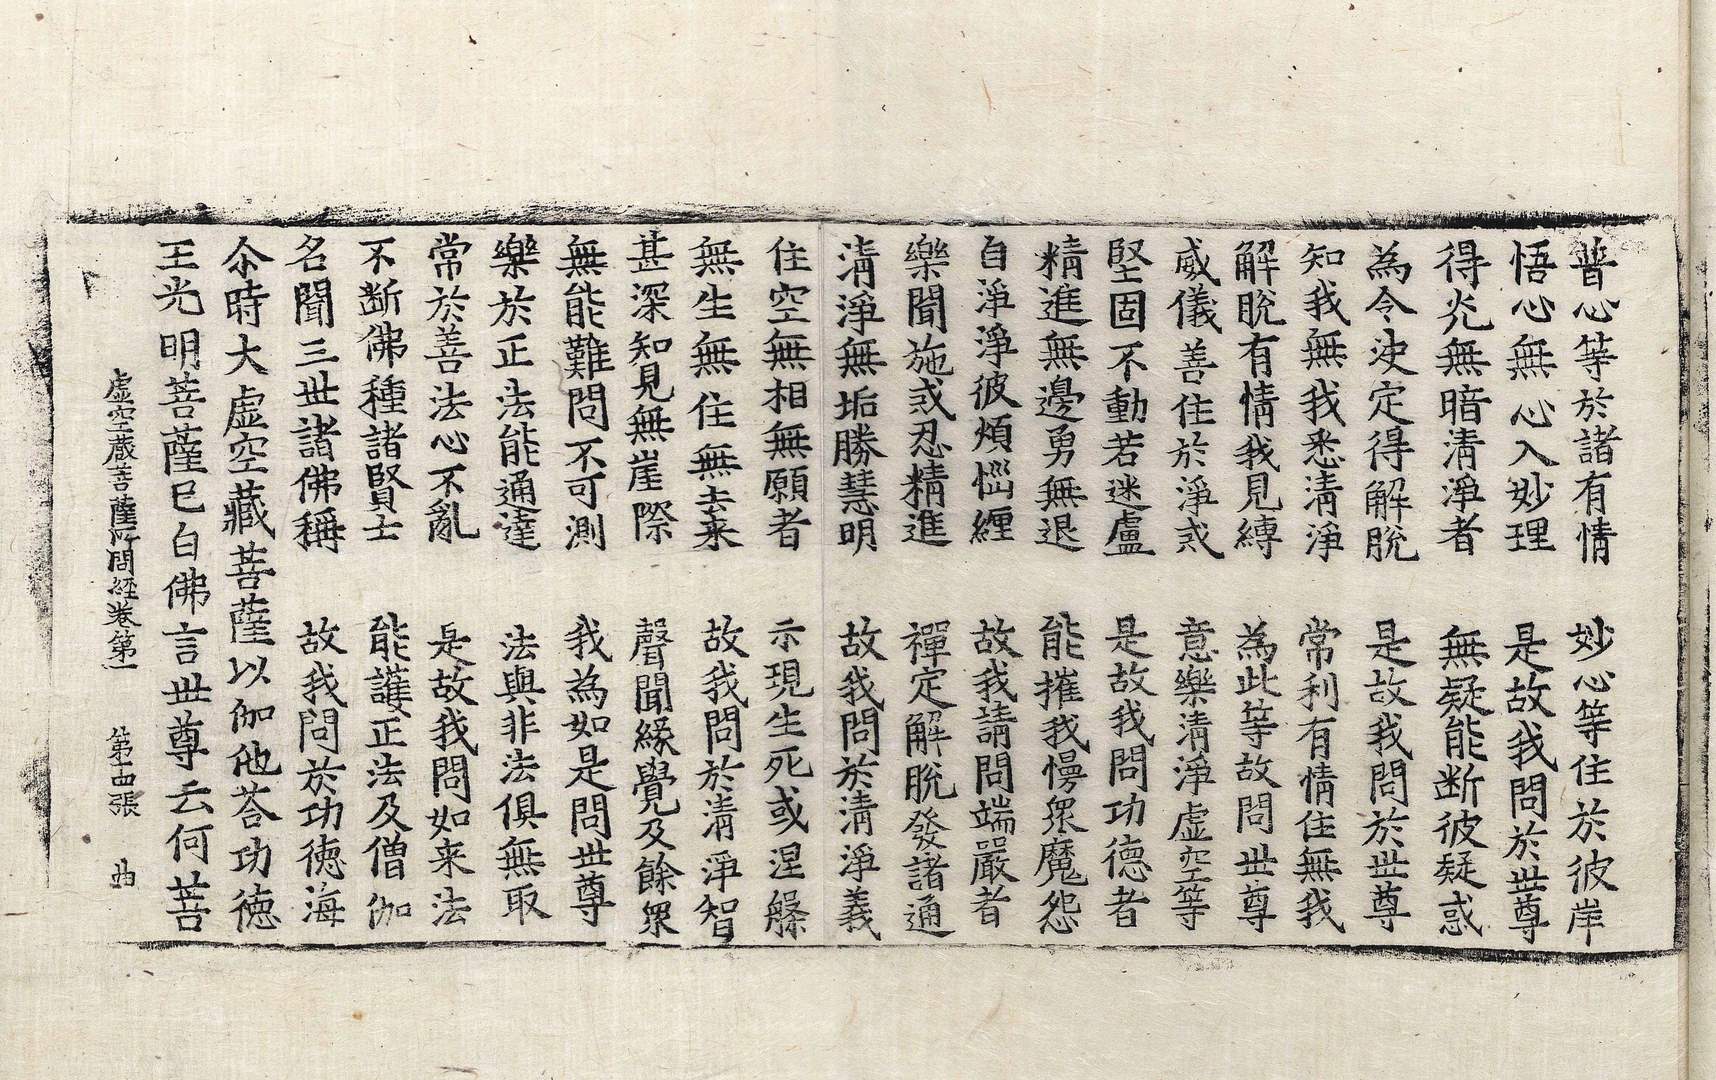 普心等於諸有情　妙心等住於彼岸
悟心無心入妙理　是故我問於世尊
得光無暗清淨者　無疑能斷彼疑惑
為令決定得解脫　是故我問於世尊
知我無我悉清淨　常利有情住無我
解脫有情我見縛　為此等故問世尊
威儀善住於淨戒　意樂清淨虛空等
堅固不動若迷盧　是故我問功德者
精進無邊勇無退　能摧我慢眾魔怨
自淨淨彼煩惱纏　故我請問端嚴者
樂聞施戒忍精進　禪定解脫發諸通
清淨無垢勝慧明　故我問於清淨義
住空無相無願者　示現生死或涅槃
無生無住無去来　故我問於清淨智
甚深知見無崖際　聲聞緣覺及餘眾
無能難問不可測　我為如是問世尊
樂於正法能通達　法與非法俱無取
常於善法心不亂　是故我問如来法
不斷佛種諸賢士　能護正法及僧伽
名聞三世諸佛稱　故我問於功德海
尒時大虛空藏菩薩以伽他荅功德
王光明菩薩已白佛言世尊云何菩
虛空藏菩薩所問經卷第一　第十四張　曲